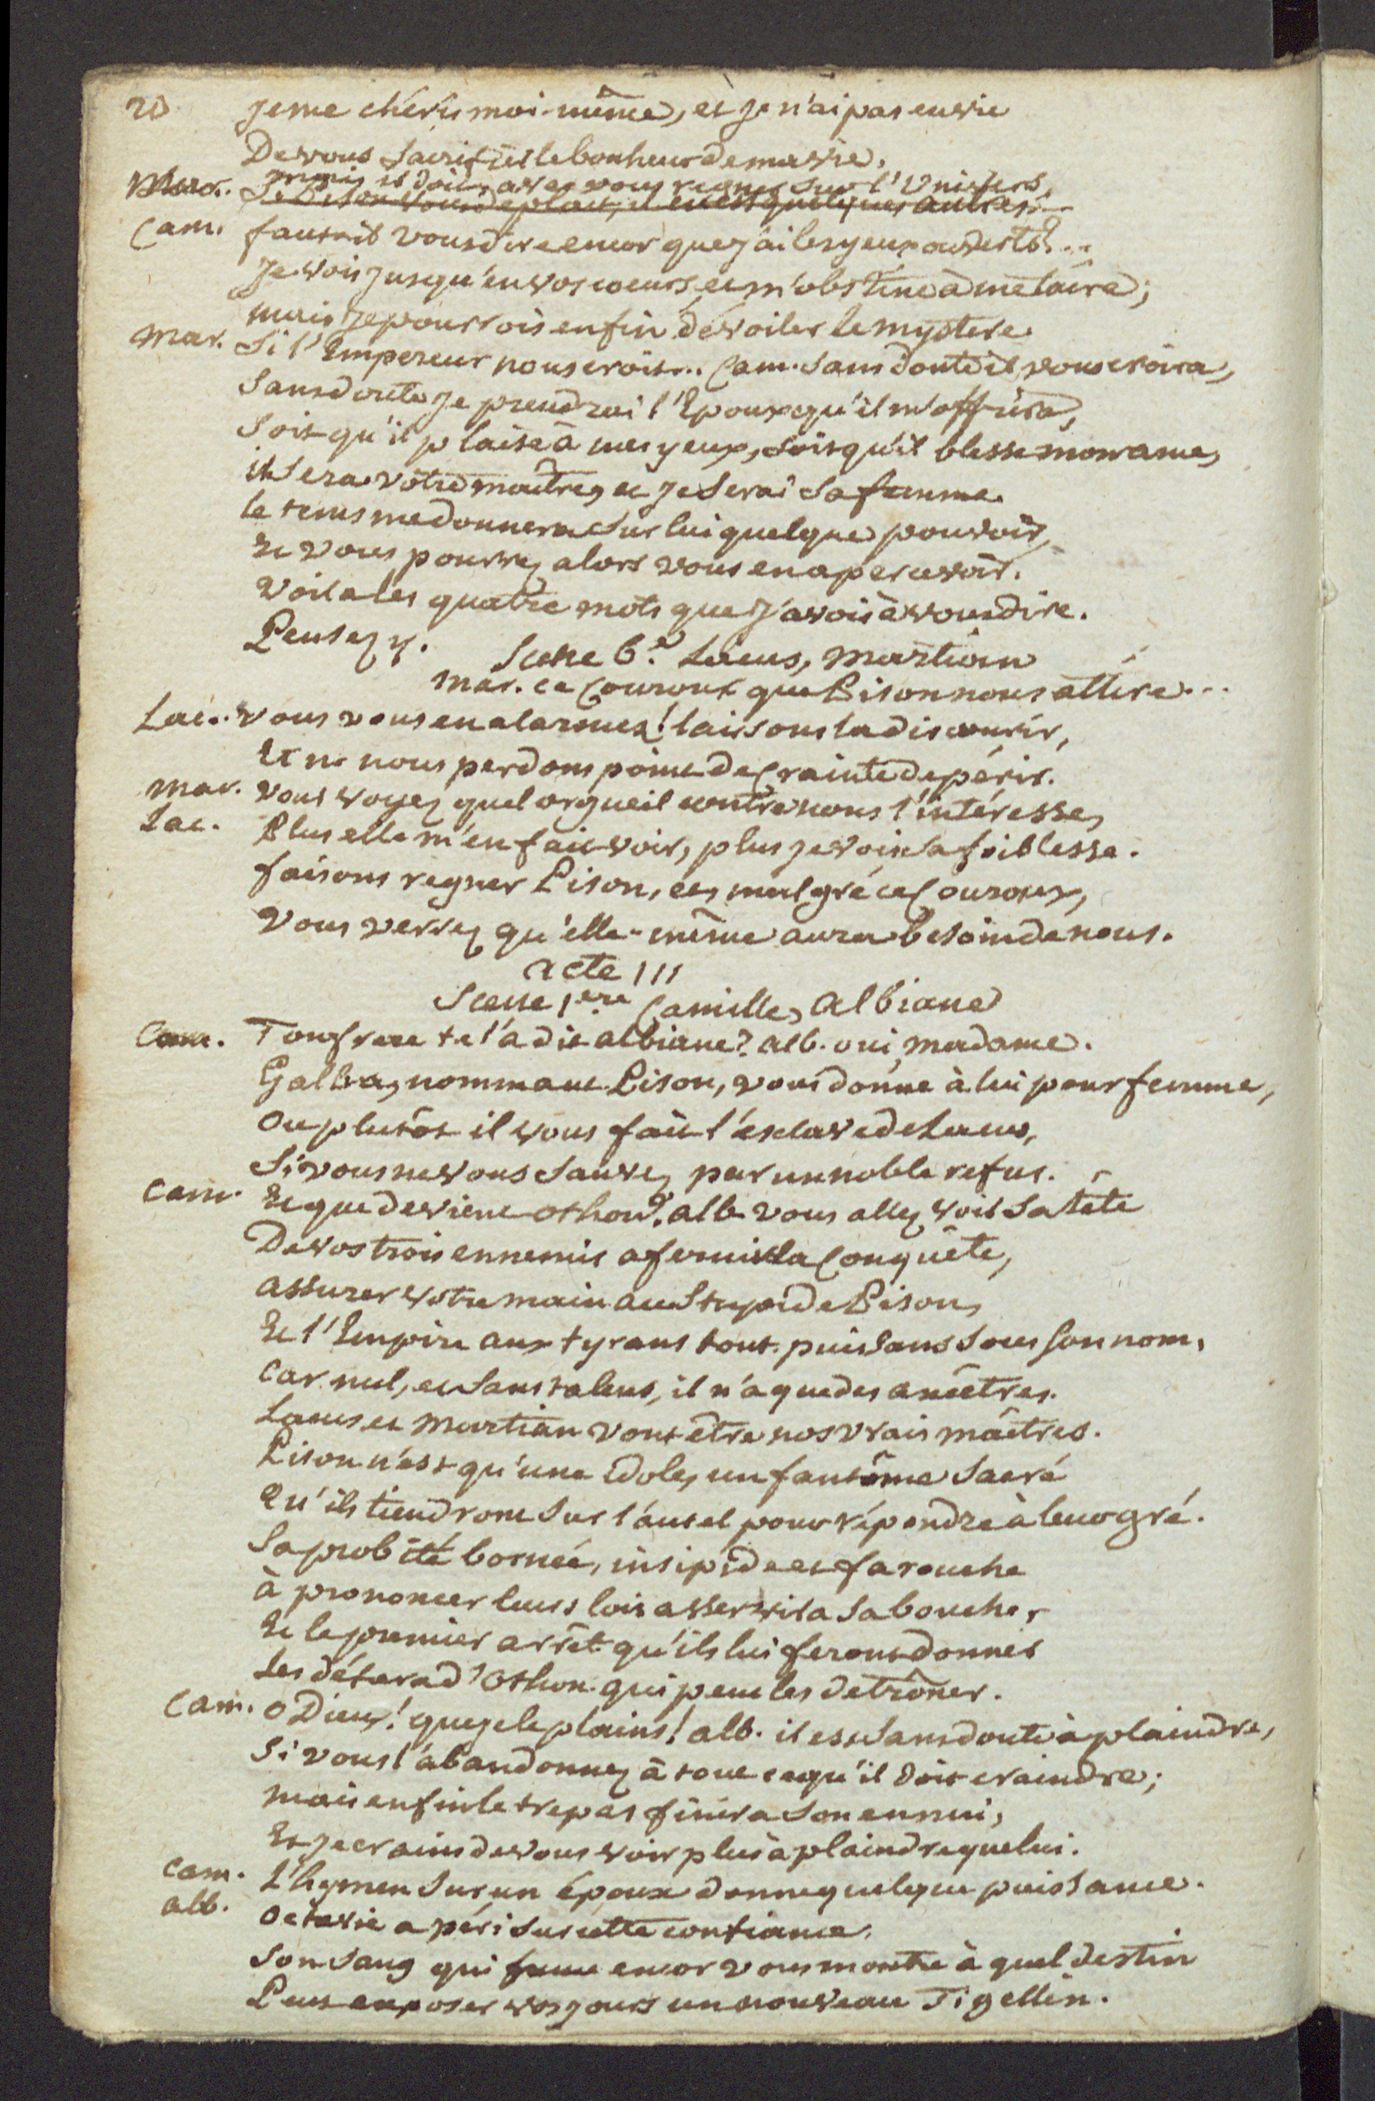 20 Je me chéris moi-même, et je n'ai pas envie
De vous sacrifier le bonheur de ma vie.
mais il doit, avec vous regner sur l'Univers,
Mar. Si Pison vous déplait, il en est quelques autres.
Cam. faut-il vous dire encor que j'ai les yeux ouverts?...
Je vois jusqu'en vos coeurs, et m'obstine à me taire;
mais je pourrois enfin dévoiler le mystere.
Mar. Si l'Empereur nous croit... Cam. Sans doute il vous croira,
Sans doute je prendrai l'Epoux qu'il m'offrira,
Soit qu'il plaise à mes yeux, soit qu'il blesse mon ame,
il sera votre maître, et je serai sa femme.
le tems me donnera sur lui quelque pouvoir,
Et vous pourrez alors vous en apercevoir.
Voila les quatre mots que j'avois à vous dire.
Pensez y. Scene 6.e Lacus, Martian
Mar. ce Couroux que Pison nous attire...
Lac. vous vous en alarmez! laissons la discourir,
Et ne nous perdons point de Crainte de périr.
mar. vous voyez quel orgueil contre nous l'intéresse,
Lac. Plus elle m'en fait voir, plus je vois sa foiblesse.
faisons regner Pison, et, malgré ce Couroux,
Vous verrez qu'elle-même aura besoin de nous.
Acte III
Scene 1.ere Camille, Albiane
Cam. Ton frere te l'a dit albiane? alb. oui, madame.
Galba, nommant Pison, vous donne à lui pour femme,
Ou plutôt il vous fait l'esclave de Lacus,
Si vous ne vous sauvez par un noble refus.
Cam. Et que devient othon? alb. vous allez voir sa tête
De vos trois ennemis afermir la Conquête,
assurer votre main au stupide Pison,
Et l'Empire aux tyrans tout-puissans sous son nom.
Car nul, et sans talens, il n'a que des ancêtres.
Lacus et Martian vont être nos vrais maîtres.
Pison n'est qu'une idole, un fantôme sacré
Qu'ils tiendront sur l'autel pour répondre à leur gré.
Sa probité bornée, insipide et farouche
à prononcer leurs lois asservira sa bouche,
Et le premier arrêt qu'ils lui feront donner
Les défera d'Othon qui peut les detrôner.
Cam. O Dieux! que je le plains! alb. il est sans doute à plaindre,
Si vous l'abandonnez à tout ce qu'il doit craindre;
mais enfin le trepas finira son ennui,
Et je crains de vous voir plus à plaindre que lui.
Cam. L'hymen sur un époux donne quelque puissance.
alb. Octavie a péri sur cette confiance.
Son sang qui fume encor vous montre à quel destin
Peut exposer vos jours un nouveau Tigellin.